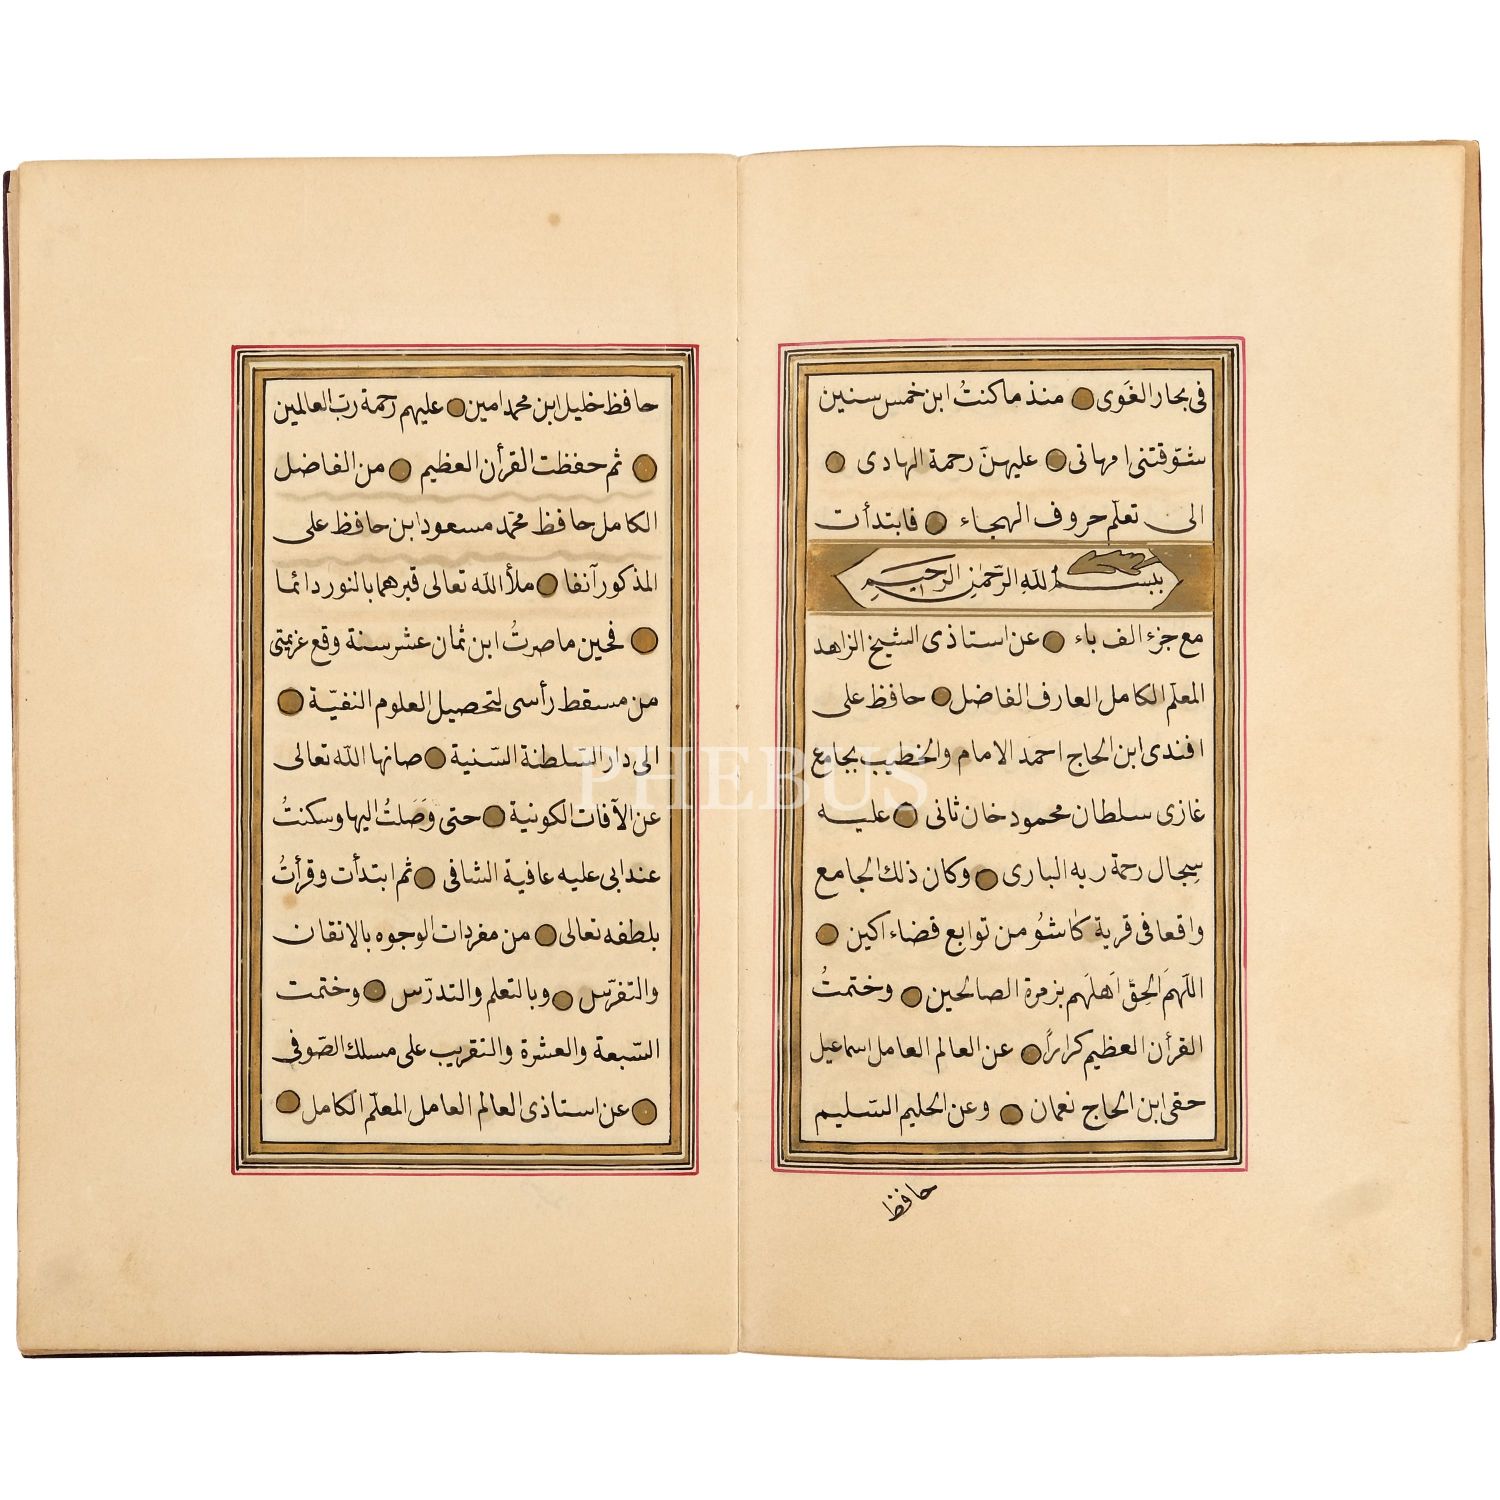 فى بحار الغَوى منذ ما كنتُ ابن خمس سنين
شوّقتنى امهاتى عليهنّ رحمة الهادى
الى تعلّم حروف الهجاء فابتدأت
بسم الله الرحمن الرحيم
مع جزء الف باء عن استاذى الشيخ الزاهد
المعلّم الكامل العارف الفاضل حافظ على
افندى ابن الحاج احمد الامام والخطيب بجامع
غازى سلطان محمود خان ثانى عليه
سِجال رحمة ربه البارى وكان ذلك الجامع
واقعا فى قرية كاشُو من توابع قضاء اكين
اللّهمَ الحِقْ اَهلَهم بزمرة الصالحين وختمتُ
القرأن العظيم كراراً عن العالم العامل اسماعيل
حقى ابن الحاج نعمان وعن الحليم السّليم
حافظ
حافظ خليل ابن محمد امين عليهم رحمة ربّ العالمين
ثم حفظت القرأن العظيم من الفاضل
الكامل حافظ محمّد مسعود ابن حافظ على
المذكور آنفا ملأ اللّه تعالى قبرهما بالنور دائما
فحين ما صرتُ ابن ثمان عشر سنة وقع عزيمتى
من مسقط رأسى لتحصيل العلوم النفيّة
الى دار السّلطنة السّنية صانها اللّه تعالى
عن الآفات الكونية حتى وَصَلتُ اليها وسكنتُ
عند ابى عليه عافية الشافى ثم ابتدأت وقرأتُ
بلطفه تعالى من مفردات الوجوه بالاتقان
والتفرّس وبالتعلم والتدرّس وختمت
السّبعة والعشرة والتقريب على مسلك الصّوفى
عن استاذى العالم العامل المعلّم الكامل
PHEBUS